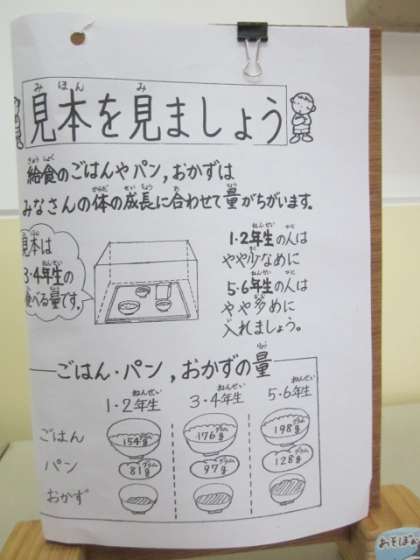 見本を見ましょう
給食のごはんやパン,おかずは
みなさんの体の成長に合わせて量がちがいます。
見本は
3・4年生の
食べる量です。
1・2年生の人は
やや少なめに
5・6年生の人は
やや多めに
入れましょう。
ごはん・パン,おかずの量
1・2年生 3・4年生 5・6年生
ごはん 154g 176g 198g
パン 81g 97g 128g
おかず
あそば